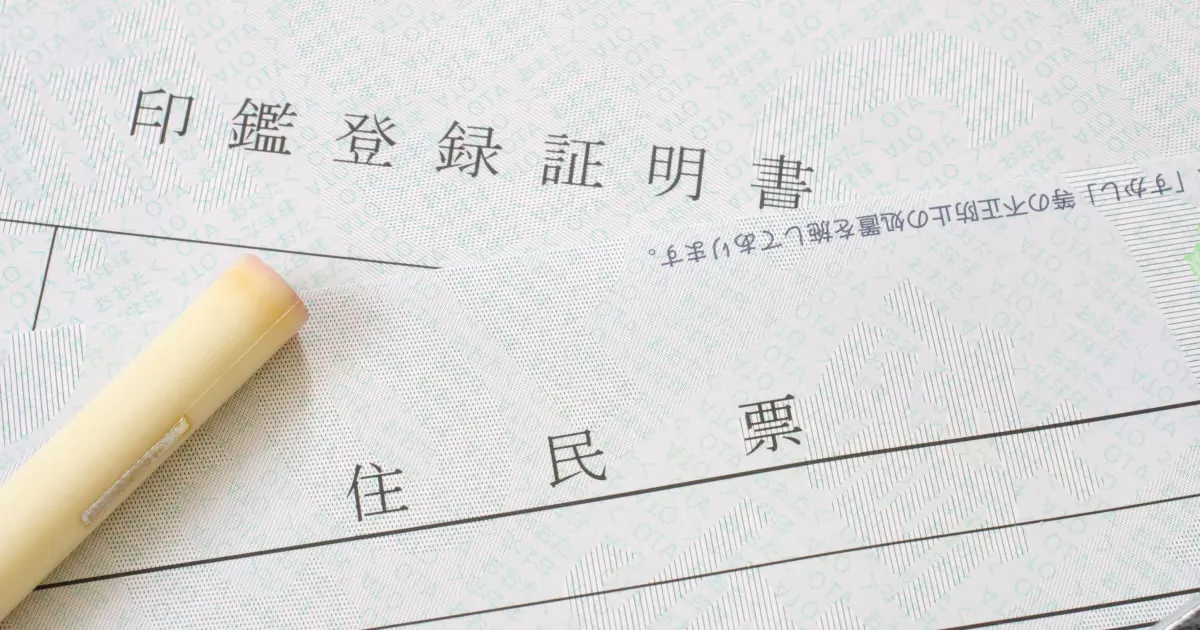 印鑑登録証明書
「すかし」等の不正防止の処置を施してあります。
住民票